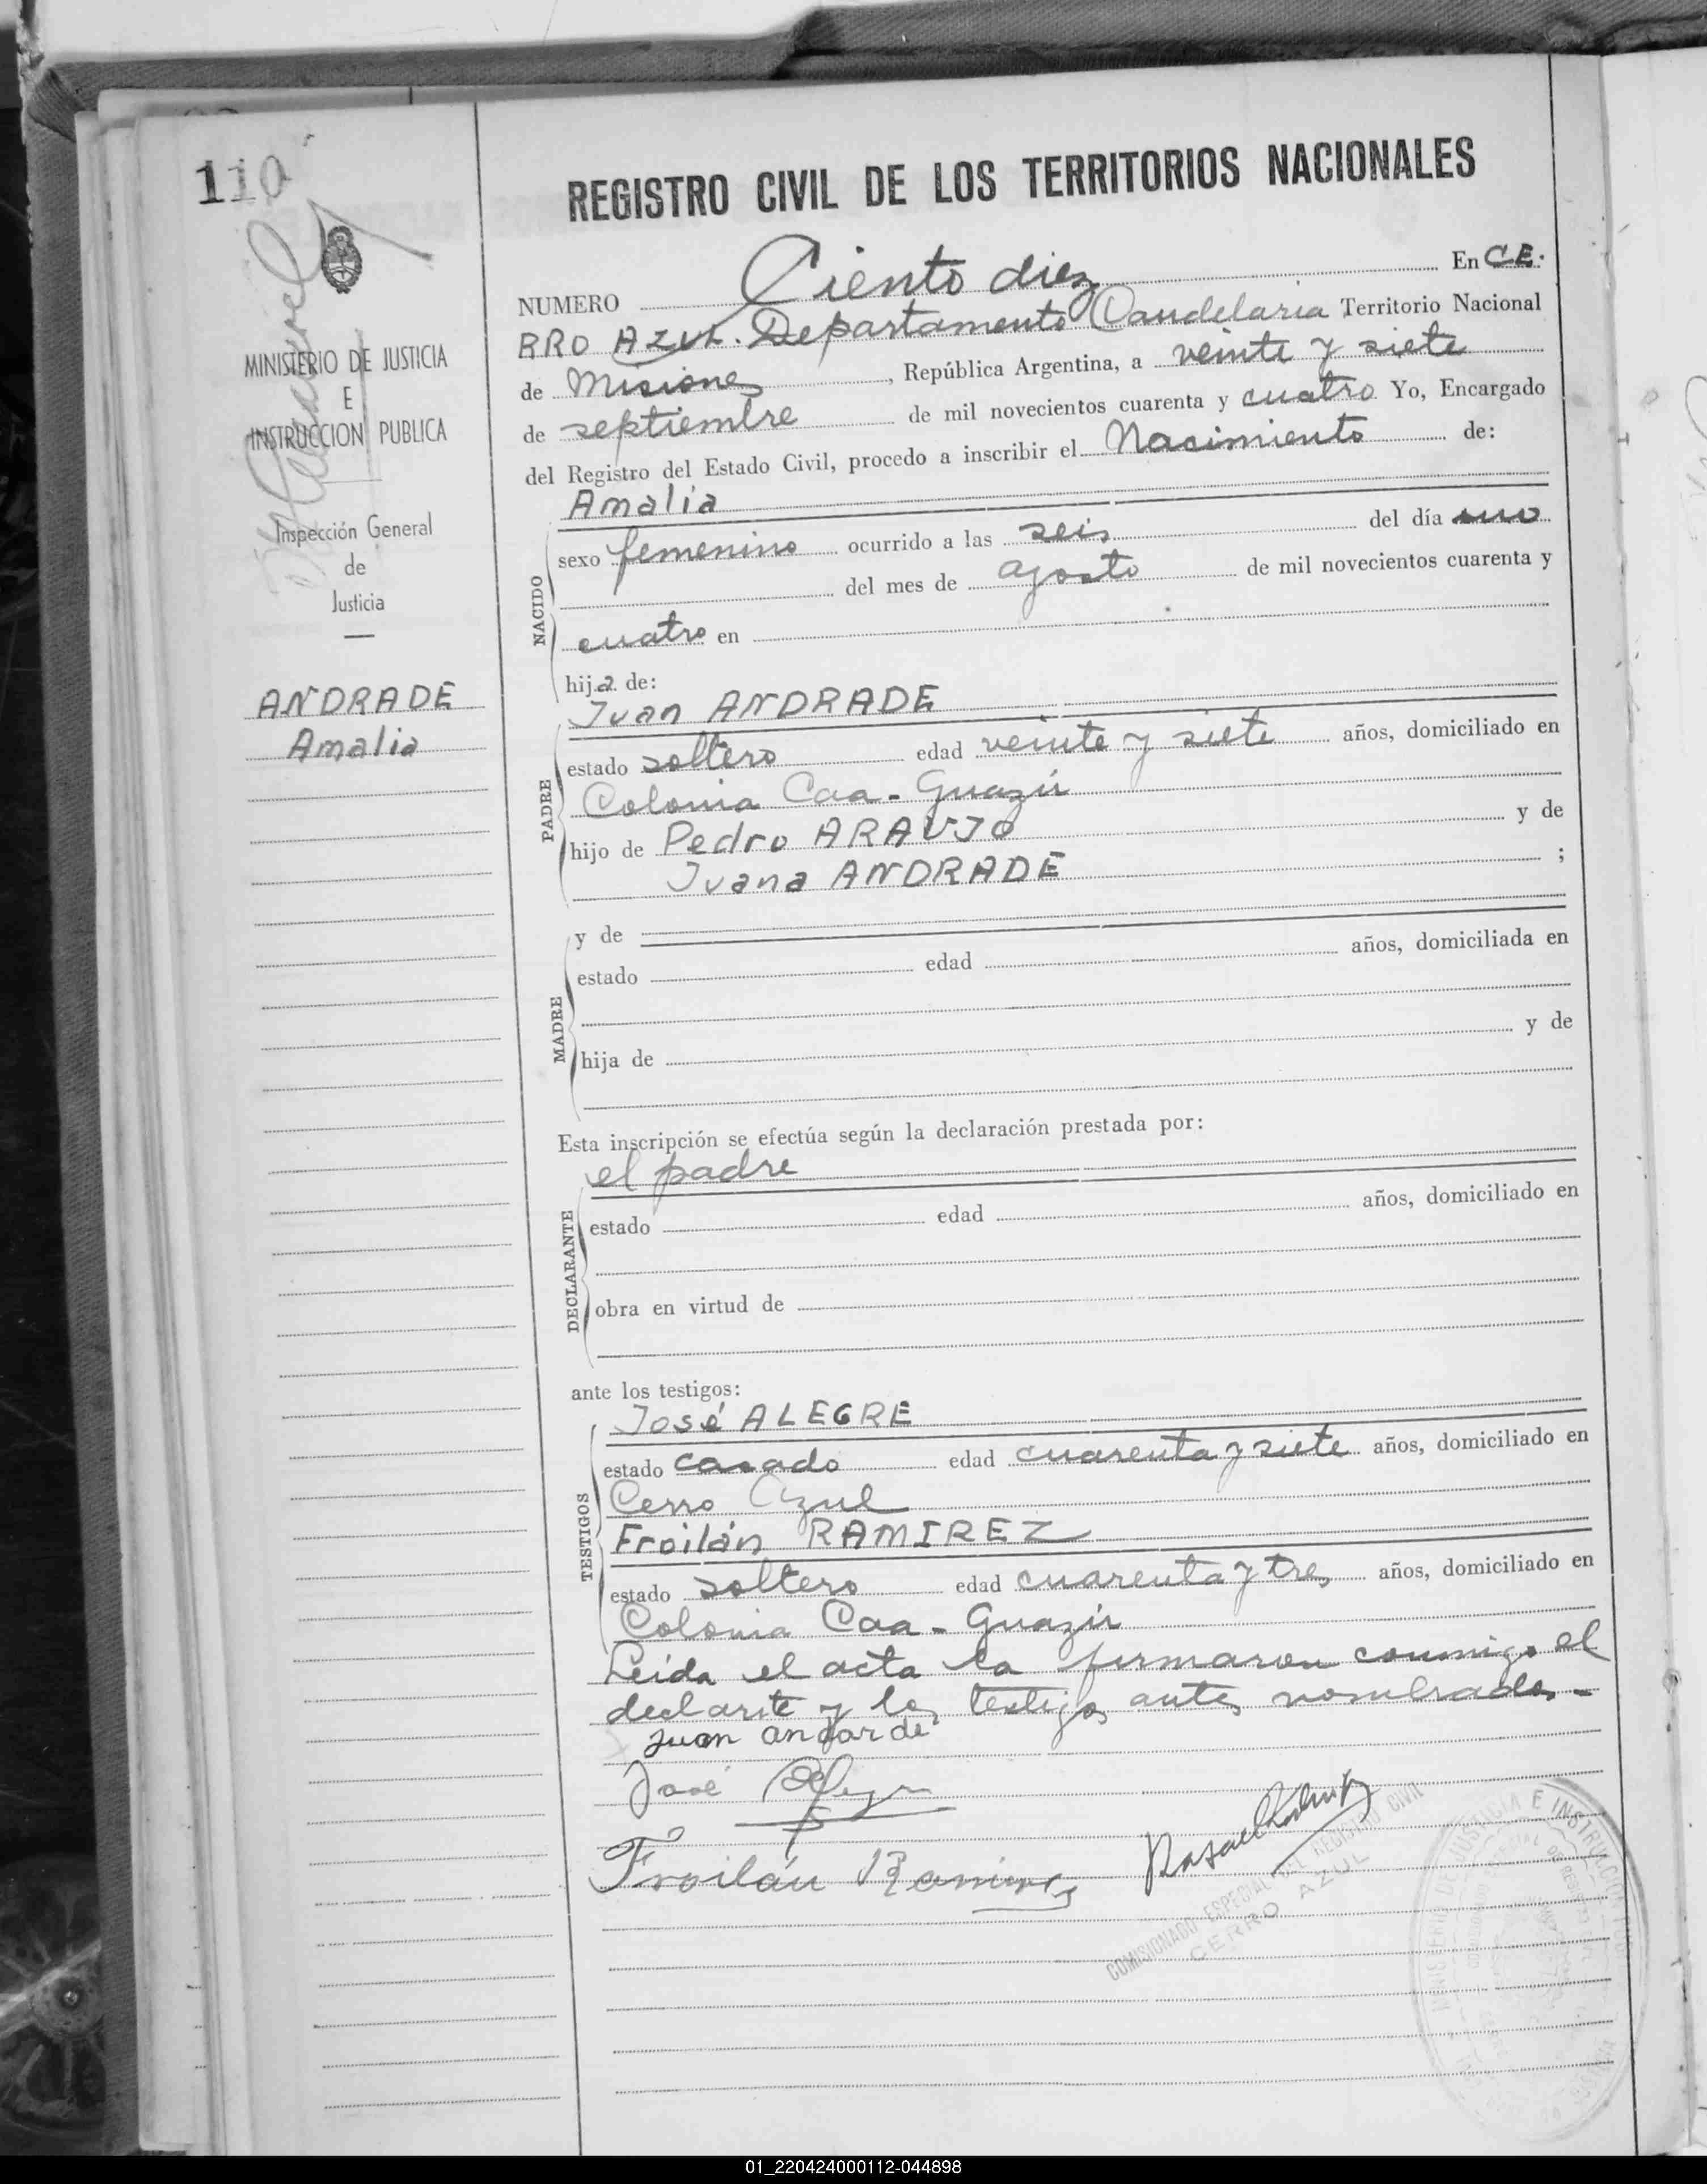 110
REGISTRO CIVIL DE LOS TERRITORIOS NACIONALES
NUMERO Ciento diez En CE.
RRO AZUL. Departamento Candelaria Territorio Nacional
de Misiones, República Argentina, a veinte y siete
de septiembre de mil novecientos cuarenta y cuatro Yo, Encargado
del Registro del Estado Civil, procedo a inscribir el Nacimiento de:
MINISTERIO DE JUSTICIA
E
INSTRUCCION PUBLICA
Inspección General
de
Justicia
ANDRADE
Amalia
NACIDO
Amalia
sexo femenino ocurrido a las seis del día uno
del mes de agosto de mil novecientos cuarenta y
cuatro en
hija de:
PADRE
Juan ANDRADE
estado soltero edad veinte y siete años, domiciliado en
Colonia Caa-Guazú
hijo de Pedro ARAUJO y de
Juana ANDRADE ;
MADRE
y de
estado edad años, domiciliada en
hija de y de
Esta inscripción se efectúa según la declaración prestada por:
DECLARANTE
el padre
estado edad años, domiciliado en
obra en virtud de
ante los testigos:
TESTIGOS
José ALEGRE
estado casado edad cuarenta y siete años, domiciliado en
Cerro Azul
Froilán RAMIREZ
estado soltero edad cuarenta y tres años, domiciliado en
Colonia Caa-Guazú
Leida el acta la firmaron conmigo el
declarte y los testigos antes nombrados.-
Juan andarde
José
Froilán Ramirez
COMISIONADO ESPECIAL DEL REGISTRO CIVIL
CERRO AZUL
MINISTERIO DE JUSTICIA E INSTRUCCION
01_220424000112-044898